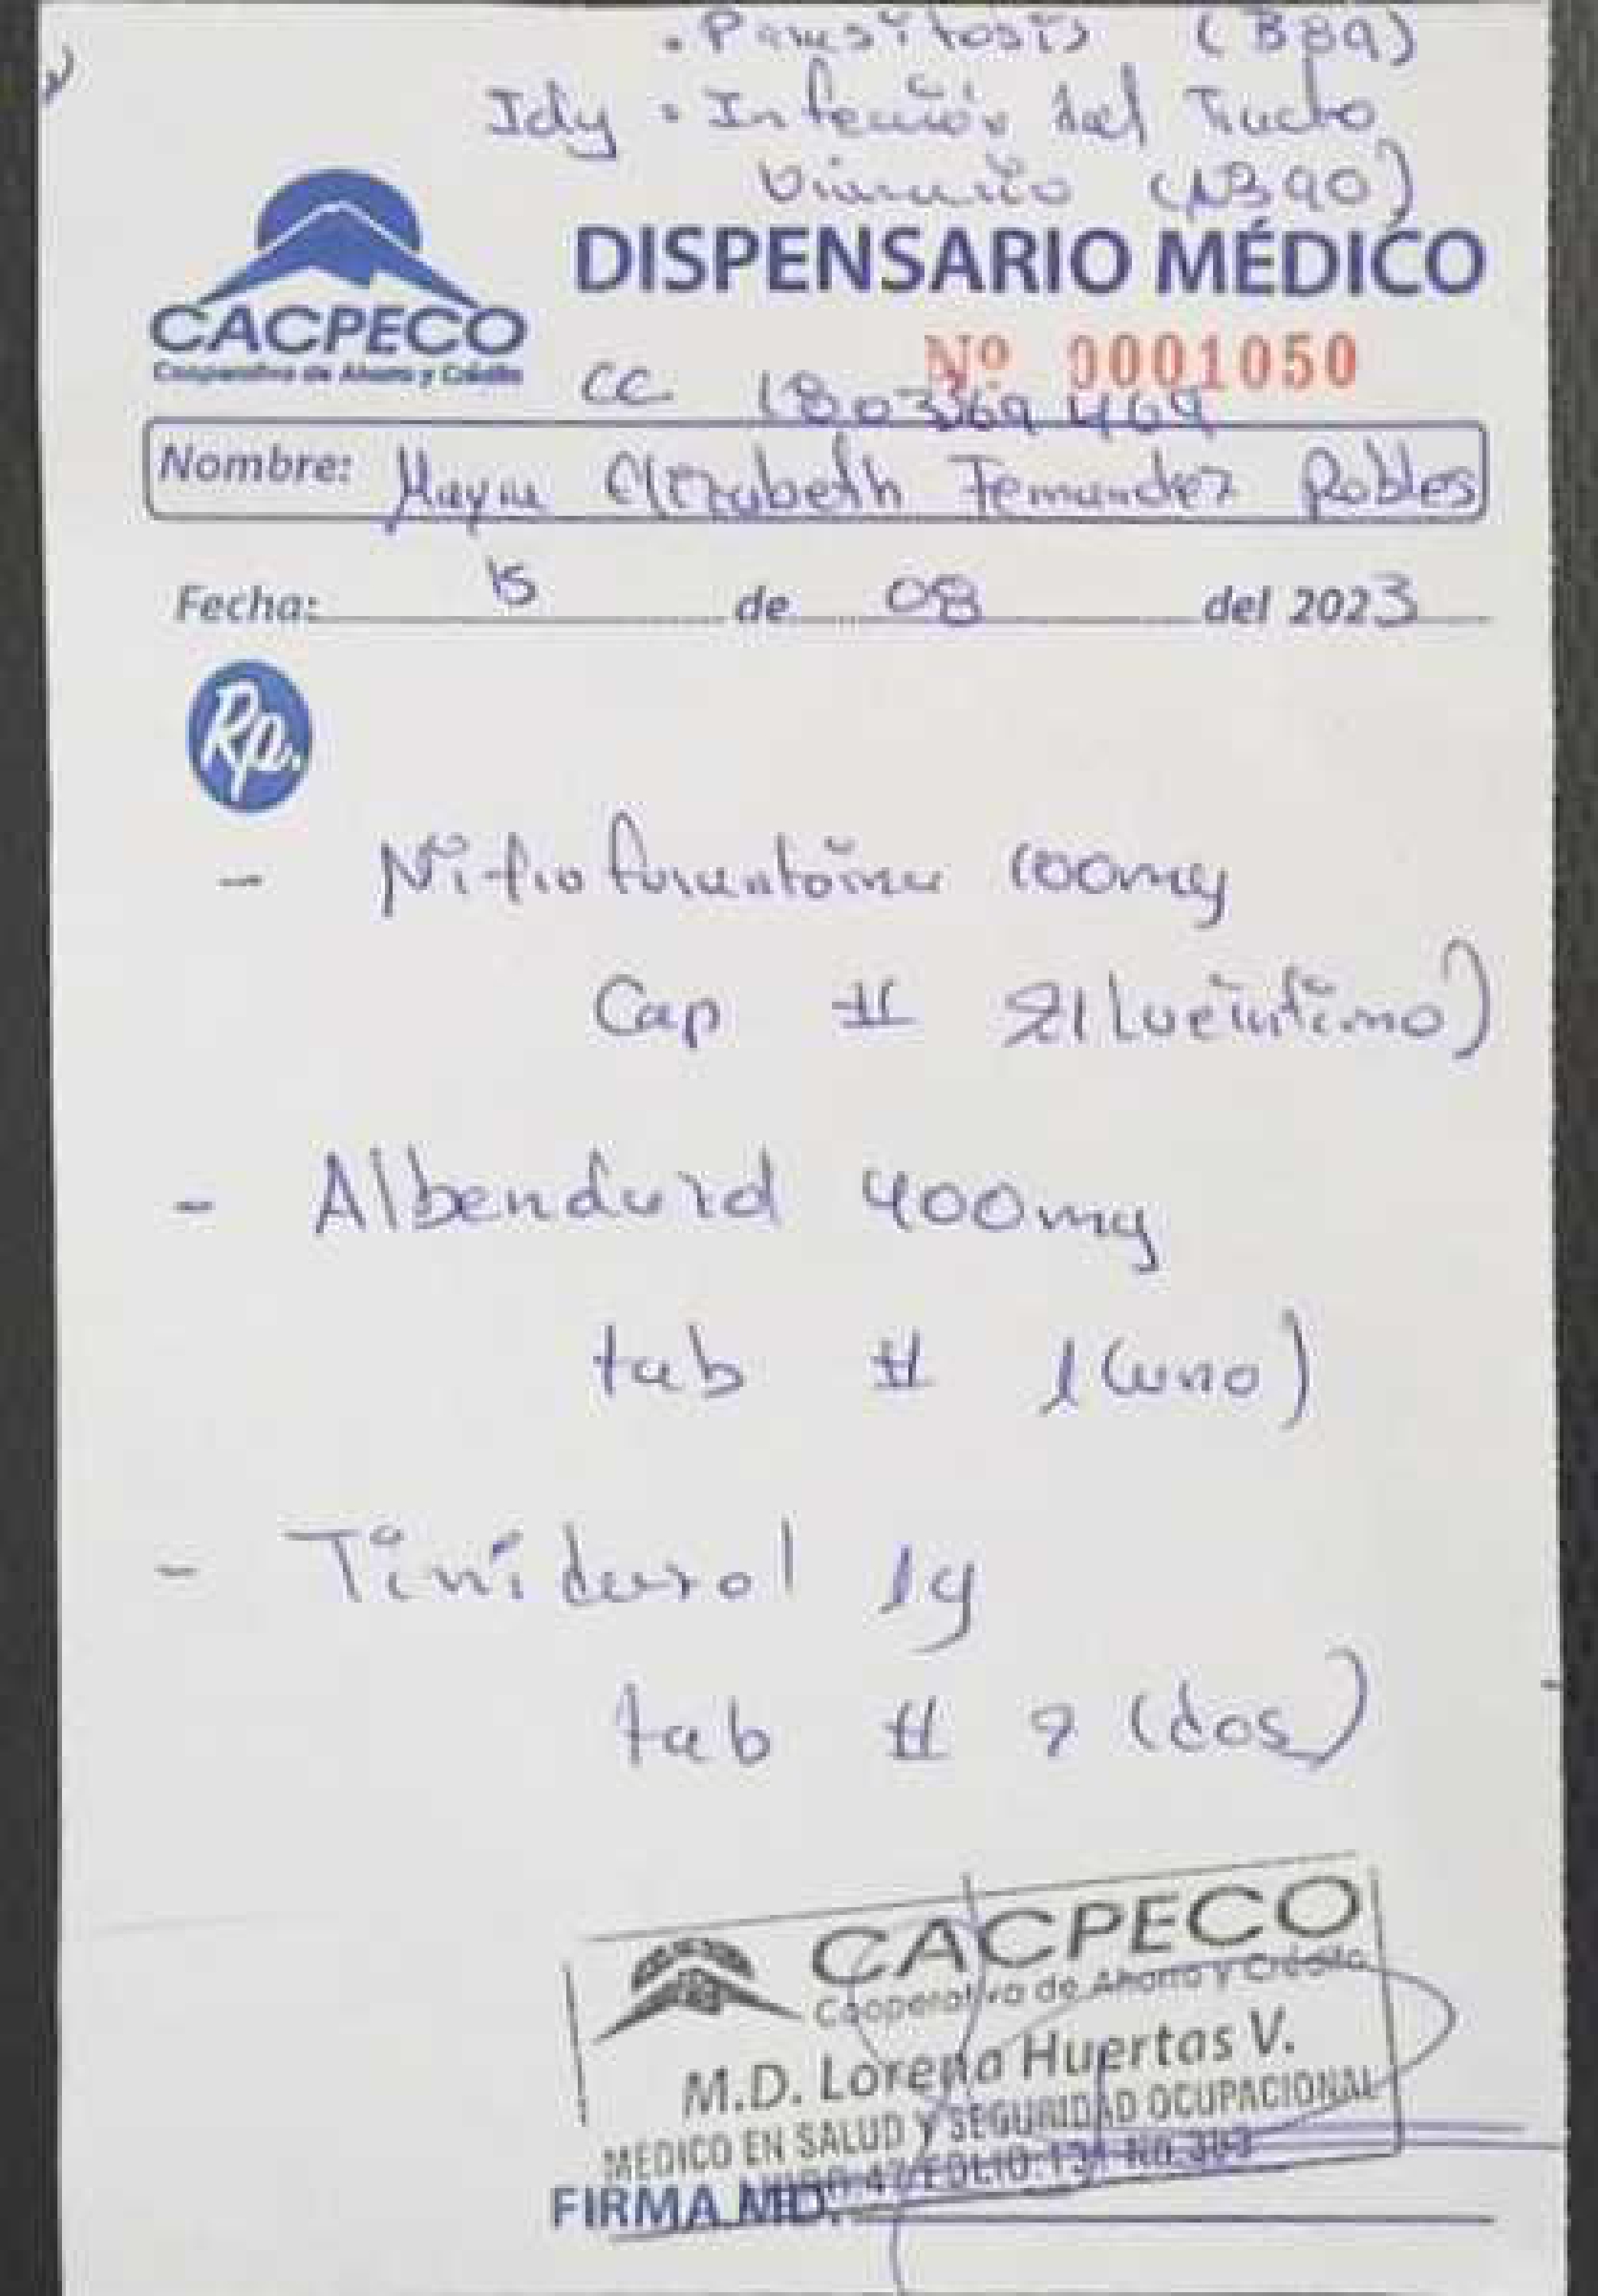 . Parasitosis (B89)
Idg . Infección del Tracto
Urinario (N390)
CACPECO
Cooperativa de Ahorro y Crédito
DISPENSARIO MÉDICO
Nº 0001050
CC 1803369469
Nombre: Mayra Elizabeth Fernandez Robles
Fecha: 15 de 08 del 2023
Rp.
- Nitrofurantoina 100mg
Cap # 21 (veintiuno)
- Albendazol 400mg
tab # 1 (uno)
- Tinidazol 1g
tab # 2 (dos)
CACPECO
Cooperativa de Ahorro y Crédito
M.D. Lorena Huertas V.
MÉDICO EN SALUD Y SEGURIDAD OCUPACIONAL
FOLIO: 131 No. 393
FIRMA MD.